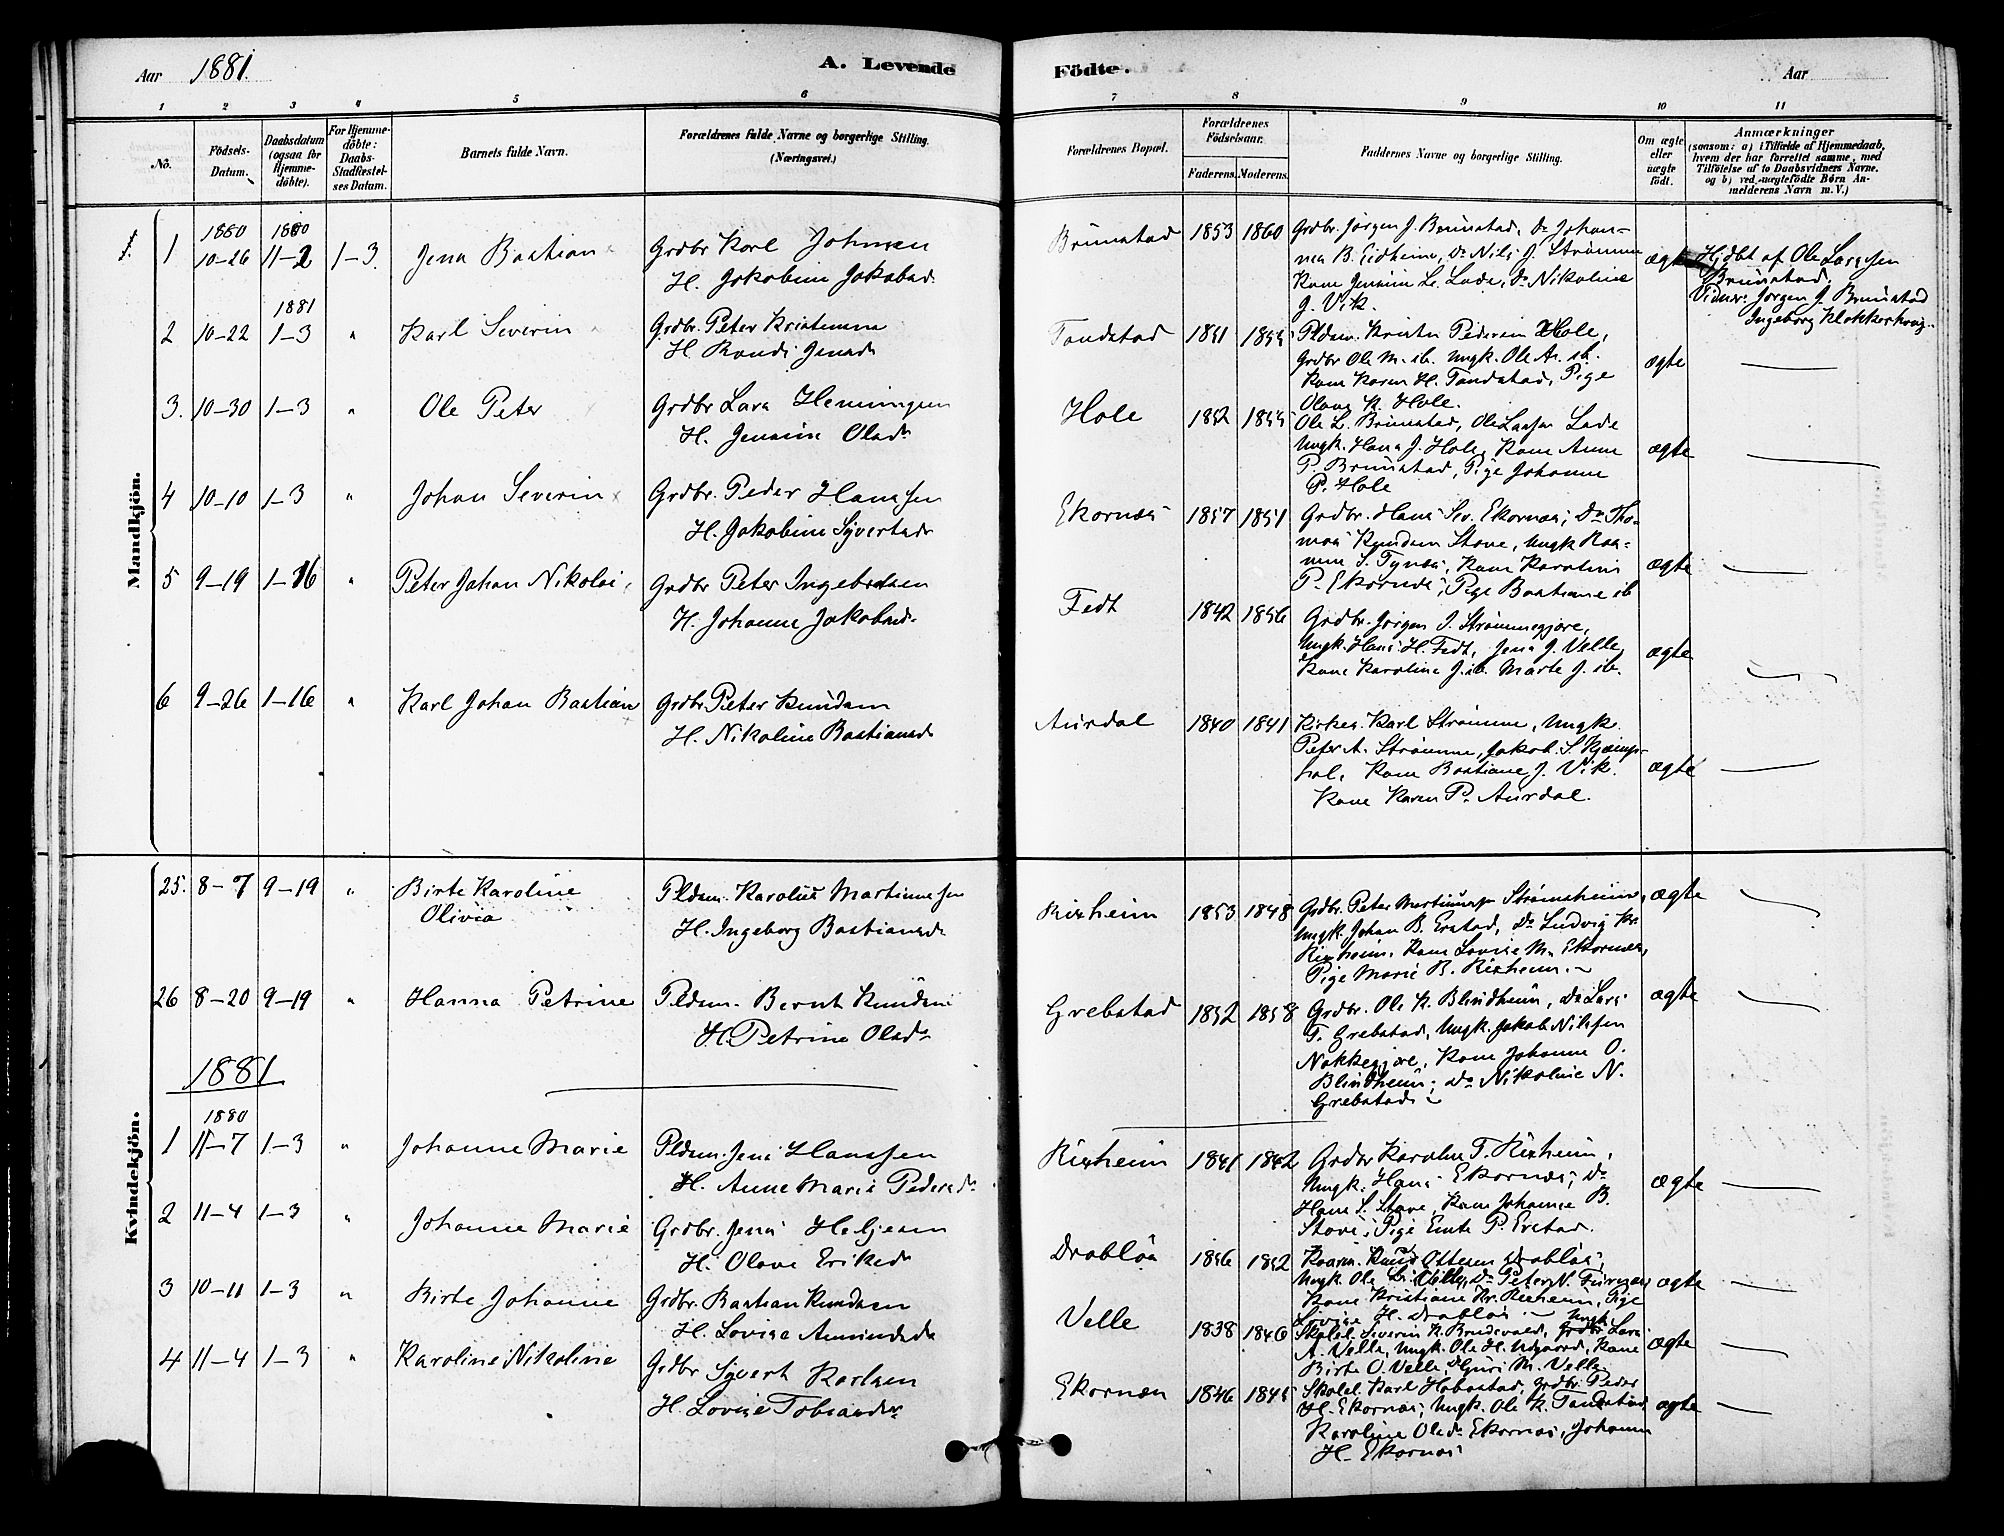 Aar 1881.
A. Levende Födte.
Aar
1 2 3 4 5 6 7 8 9 10 11
No.
Födsels-
Datum.
Daabsdatum
(ogsaa for
Hjemme-
döbte).
For Hjemme-
döbte:
Daabs-
Stadfæstel-
ses Datum.
Barnets fulde Navn.
Forældrenes fulde Navne og borgerlige Stilling.
(Næringsvei.)
Forældrenes Bopæl.
Forældrenes
Födselsaar.
Faderens. Moderens.
Faddernes Navne og borgerlige Stilling.
Om ægte
eller
uægte
födt.
Anmærkninger
(saasom: a) i Tilfælde af Hjemmedaab,
hvem der har forrettet samme, med
Tilföielse af to Daabsvidners Navne,
og b) ved uægtefödte Börn An-
melderens Navn m. V.)
Mandkjön.
1880 1880
1 10-26 11-2 1-3. Jens Bastian Grdbr Karl Johnsen
H. Jakobine Jakobsd.
Brunstad 1853 1860 Grdbr. Jørgen J. Brunstad, Do Johan-
nes B. Eidheim, Do Nils J. Strømme
Kone Jensine L. Lade, Do Nikoline
J. Vik.
ægte
Hjdbt af Ole Larssen
Brunstad.
Vidner: Jørgen J. Brunstad
Ingeborg Klokkerhoug.
1881
2 10-22 1-3 " Karl Severin Grdbr. Peter Kristensen
H. Randi Jensd
Tandstad 1851 1855 Pldsm. Kristen Pedersen Hole,
Grdbr Ole M. ib. Ungk. Ole A. ib.
Kone Karen H. Tandstad, Pige
Olave K. Hole.
ægte
3. 10-30 1-3 " Ole Peter Grdbr Lars Hemingsen
H. Jensine Olsdr
Hole 1852 1855 Ole L. Brunstad, Ole Larssen Lade
Ungk. Hans J. Hole, Kone Anne
P. Brunstad, Pige Johanne
P. Hole
ægte
4 10-10 1-3 " Johan Severin Grdbr. Peder Hanssen
H. Jakobine Syvertsdr
Ekornæs 1857 1851 Grdbr. Hans Sev. Ekornæs, Do Tho-
mas Knudsen Stave, Ungk Ras-
mus S. Tynæs, Kone Karoline
P. Ekornæs, Pige Bastiane ib
ægte
5 9-19 1-16 " Peter Johan Nikolai Grdbr Peter Ingebrigtsen
H. Johanne Jakobsdr.
Fedt 1842 1856 Grdbr. Jørgen J. Strømmegjære,
Ungk. Hans H. Fedt, Jens J. Velle,
Kone Karoline J. ib. Marte J. ib.
ægte
6 9-26 1-16 " Karl Johan Bastian Grdbr. Peter Knudsen
H. Nikoline Bastiansdr
Aurdal 1840 1841 Kirkes. Karl Strømme, Ungk.
Peter A. Strømme, Jakob S. Kjæmp-
hol, Kone Bastiane J. Vik.
Kone Karen P. Aurdal.
ægte
Kvindekjön.
25. 8-7 9-19 " Birte Karoline
Olivia
Pldsm. Karolus Martinussen
H. Ingeborg Bastiansdr
Rixheim 1853 1848 Grdbr. Peter Martinussen Strømsheim,
Ungk. Johan B. Erstad, Do Ludvig Kr.
Rixheim, Kone Lovise M. Ekornæs,
Pige Marie B. Rixheim.
ægte
26 8-20 9-19 " Hanna Petrine Pldsm. Bernt Knudsen
H. Petrine Olsdr
Grebstad 1852 1858 Grdbr. Ole K. Blindheim, Do Lars
T. Grebstad, Ungk. Jakob Nilssen
Nakkegjære, Kone Johanne O.
Blindheim, Do Nikoline N.
Grebstad
ægte
1881
1880
1 11-7 1-3 " Johanne Marie Pldsm. Jens Hanssen
H. Anne Marie Pedersdr
Rixheim 1841 1842 Grdbr Karolus T. Rixheim,
Ungk. Hans Ekornæs, Do
Hans S. Stave, Kone Johanne B.
Stave, Pige Emte P. Erstad.
ægte
2 11-4 1-3 " Johanne Marie Grdbr. Jens Heljesen
H. Olave Eriksdr
Drabløs 1856 1852 Kaarm. Knud Ottesen Drabløs,
Ungk Ole L. Velle, Do Peter N. Furesæs
Kone Kristiane Kr. Rixheim, Pige
Lovise H. Drabløs
ægte
3 10-11 1-3 " Birte Johanne Grdbr. Bastian Knudsen
H. Lovise Amundsdr
Velle 1838 1846 Skolel. Severin K. Brudevold, Grdbr. Lars
A. Velle, Ungk. Ole H. Utgaard, Kone
Birte O. Velle, Do Guri M. Velle
ægte
4 11-4 1-3 " Karoline Nikoline Grdbr Syvert Karlsen
H. Lovise Tobiasdr
Ekornæs 1846 1845 Skolel. Karl Hobostad, Grdbr. Peder
H. Ekornæs, Ungk. Ole K. Tandstad,
Karoline Olsdr Ekornæs, Johanne
H. Ekornæs
ægte